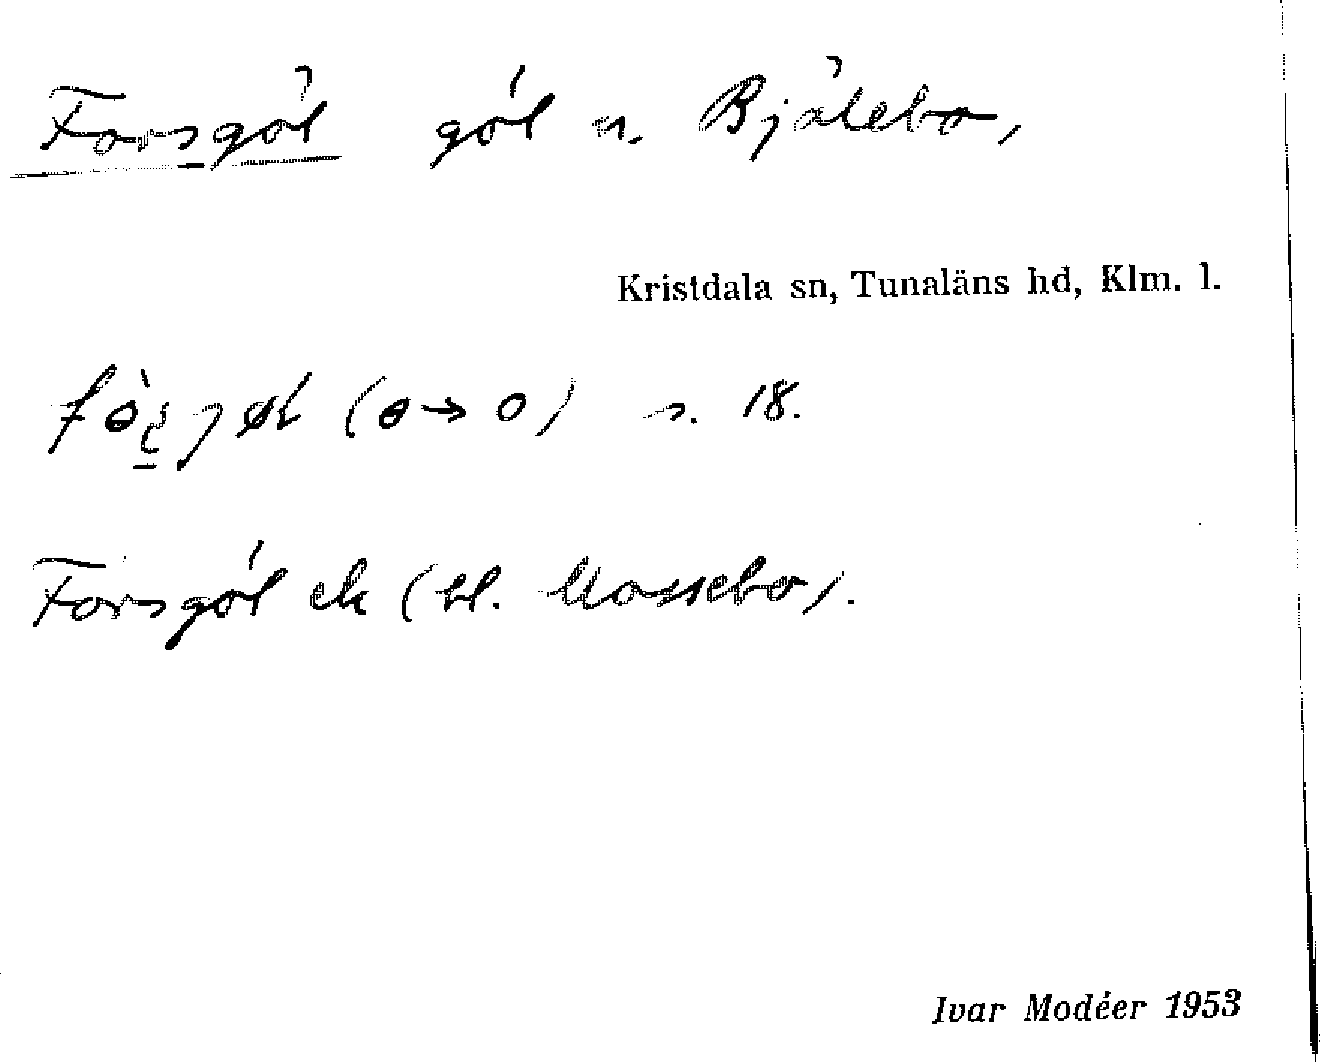 Forsgöl göl n. Bjälebo,
Kristdala sn, Tunaläns hd, Klm. l.
(ɵ→o) s. 18.
Forsgöl ek (bl. Mossebo).
Ivar Modéer 1953